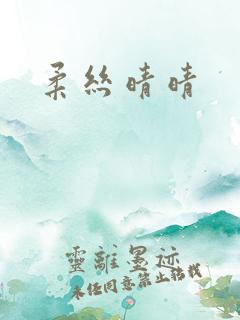 柔絲晴晴
靈離墨迹
未经同意禁止转载